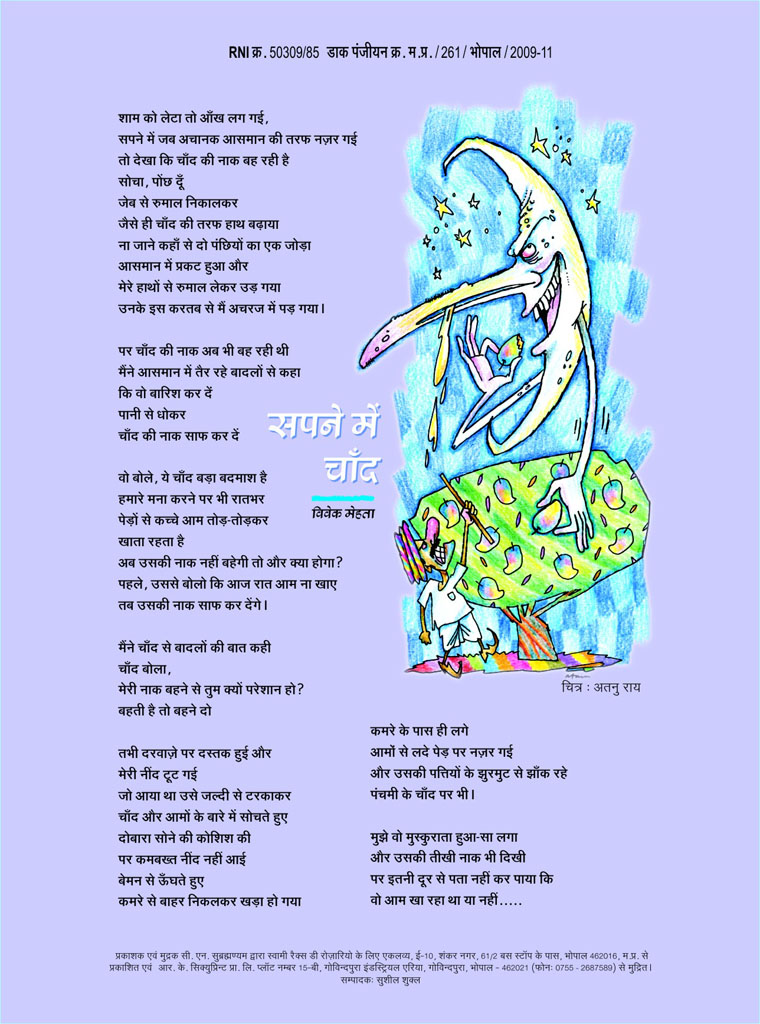 RNI क्र. 50309/85 डाक पंजीयन क्र. म.प्र. / 261 / भोपाल / 2009-11
सपने में
चाँद
विवेक मेहता
शाम को लेटा तो आँख लग गई,
सपने में जब अचानक आसमान की तरफ नज़र गई
तो देखा कि चाँद की नाक बह रही है
सोचा, पोंछ दूँ
जेब से रुमाल निकालकर
जैसे ही चाँद की तरफ हाथ बढ़ाया
ना जाने कहाँ से दो पंछियों का एक जोड़ा
आसमान में प्रकट हुआ और
मेरे हाथों से रुमाल लेकर उड़ गया
उनके इस करतब से मैं अचरज में पड़ गया।
पर चाँद की नाक अब भी बह रही थी
मैंने आसमान में तैर रहे बादलों से कहा
कि वो बारिश कर दें
पानी से धोकर
चाँद की नाक साफ कर दें
वो बोले, ये चाँद बड़ा बदमाश है
हमारे मना करने पर भी रातभर
पेड़ों से कच्चे आम तोड़-तोड़कर
खाता रहता है
अब उसकी नाक नहीं बहेगी तो और क्या होगा?
पहले, उससे बोलो कि आज रात आम ना खाए
तब उसकी नाक साफ कर देंगे।
मैंने चाँद से बादलों की बात कही
चाँद बोला,
मेरी नाक बहने से तुम क्यों परेशान हो?
बहती है तो बहने दो
तभी दरवाज़े पर दस्तक हुई और
मेरी नींद टूट गई
जो आया था उसे जल्दी से टरकाकर
चाँद और आमों के बारे में सोचते हुए
दोबारा सोने की कोशिश की
पर कमबख्त नींद नहीं आई
बेमन से ऊँघते हुए
कमरे से बाहर निकलकर खड़ा हो गया
चित्र : अतनु राय
कमरे के पास ही लगे
आमों से लदे पेड़ पर नज़र गई
और उसकी पत्तियों के झुरमुट से झाँक रहे
पंचमी के चाँद पर भी।
मुझे वो मुस्कुराता हुआ-सा लगा
और उसकी तीखी नाक भी दिखी
पर इतनी दूर से पता नहीं कर पाया कि
वो आम खा रहा था या नहीं.....
प्रकाशक एवं मुद्रक सी. एन. सुब्रह्मण्यम द्वारा स्वामी रैक्स डी रोज़ारियो के लिए एकलव्य, ई-10, शंकर नगर, 61/2 बस स्टॉप के पास, भोपाल 462016, म.प्र. से
प्रकाशित एवं आर. के. सिक्युप्रिन्ट प्रा. लि. प्लॉट नम्बर 15-बी, गोविन्दपुरा इंडस्ट्रियल एरिया, गोविन्दपुरा, भोपाल - 462021 (फोन: 0755 - 2687589) से मुद्रित।
सम्पादक: सुशील शुक्ल